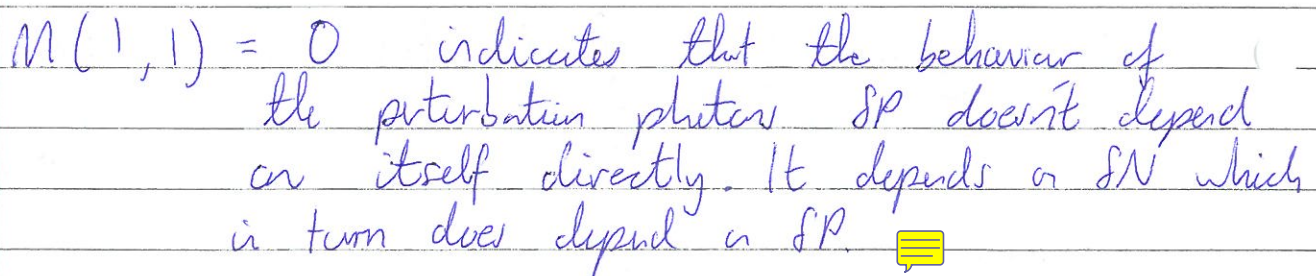 M(1,1) = 0 indicates that the behaviour of
the perturbation photons δP doesn't depend
on itself directly. It depends on δN which
in turn does depend on δP.